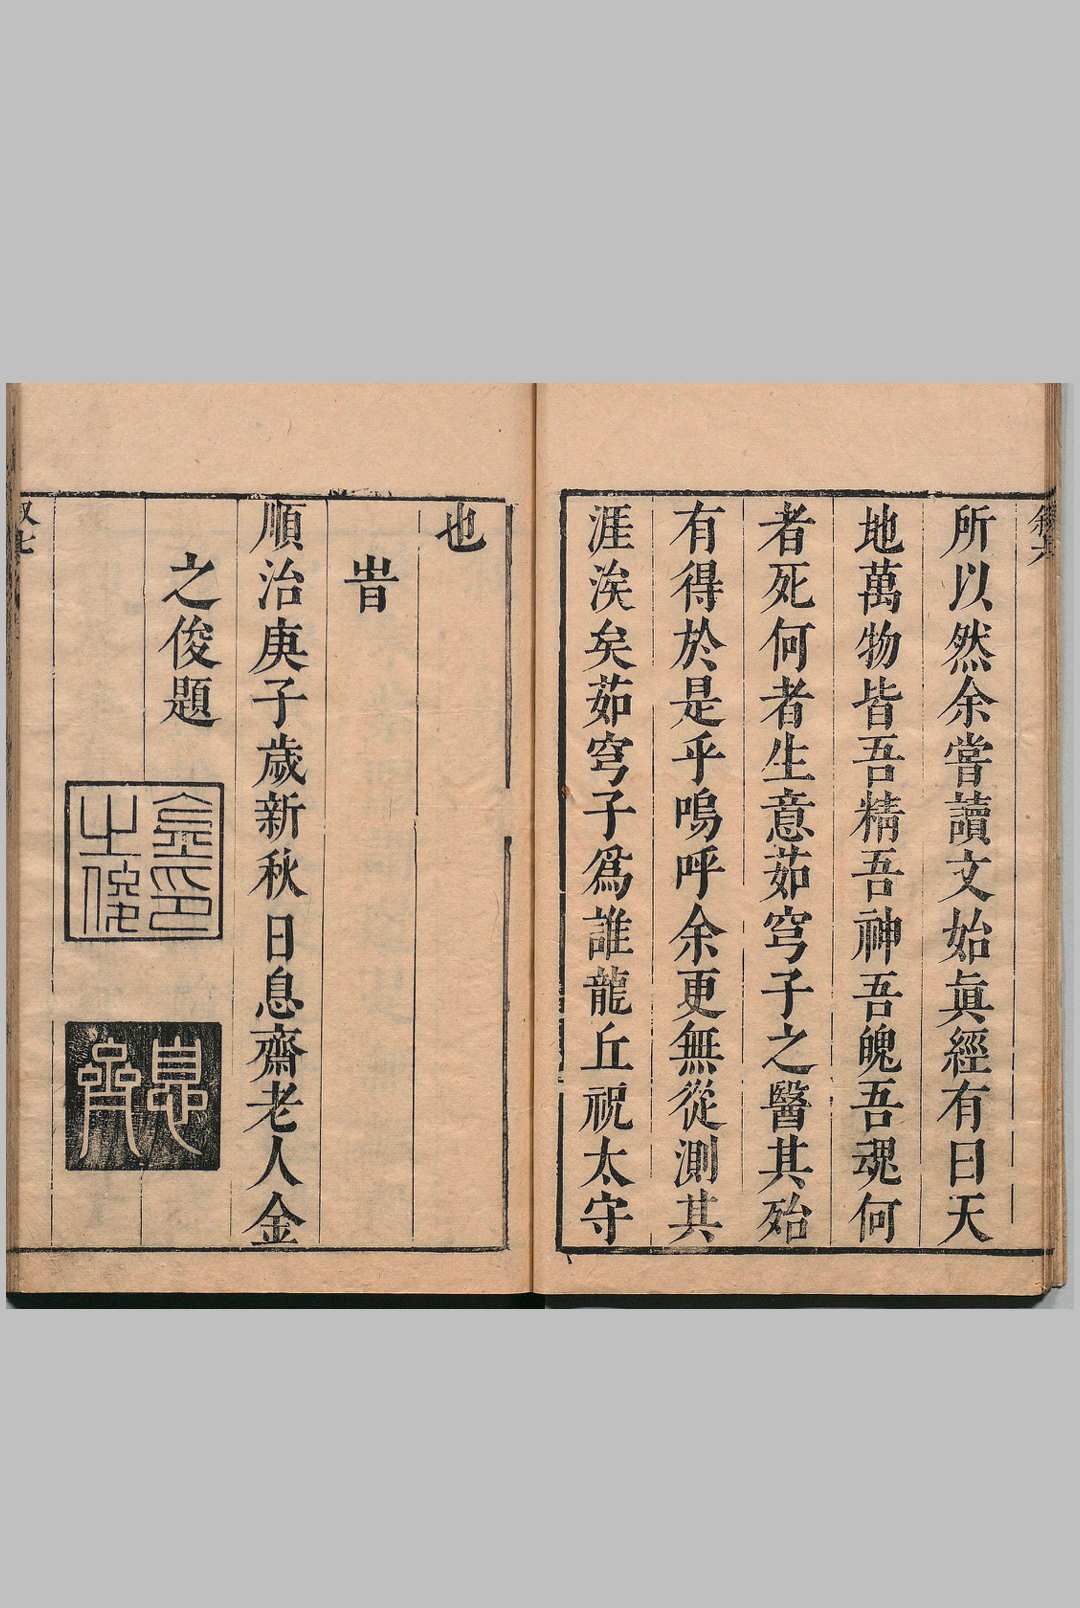 叙六
所以然余嘗讀文始眞經有曰天
地萬物皆吾精吾神吾魄吾魂何
者死何者生意茹穹子之醫其殆
有得於是乎嗚呼余更無從測其
涯涘矣茹穹子爲誰龍丘祝太守
也
旹
順治庚子歲新秋日息齋老人金
之俊題
金印
之俊
息齋
叙七